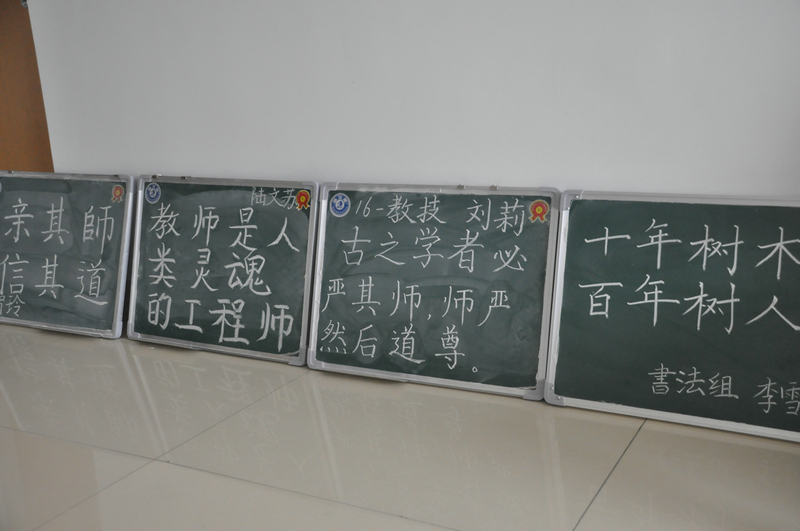 亲其師
信其道
玲
陆文苏
教师是人
类灵魂
的工程师
16-教技 刘莉
古之学者必
严其师,师严
然后道尊。
十年树木
百年树人
書法组 李雪